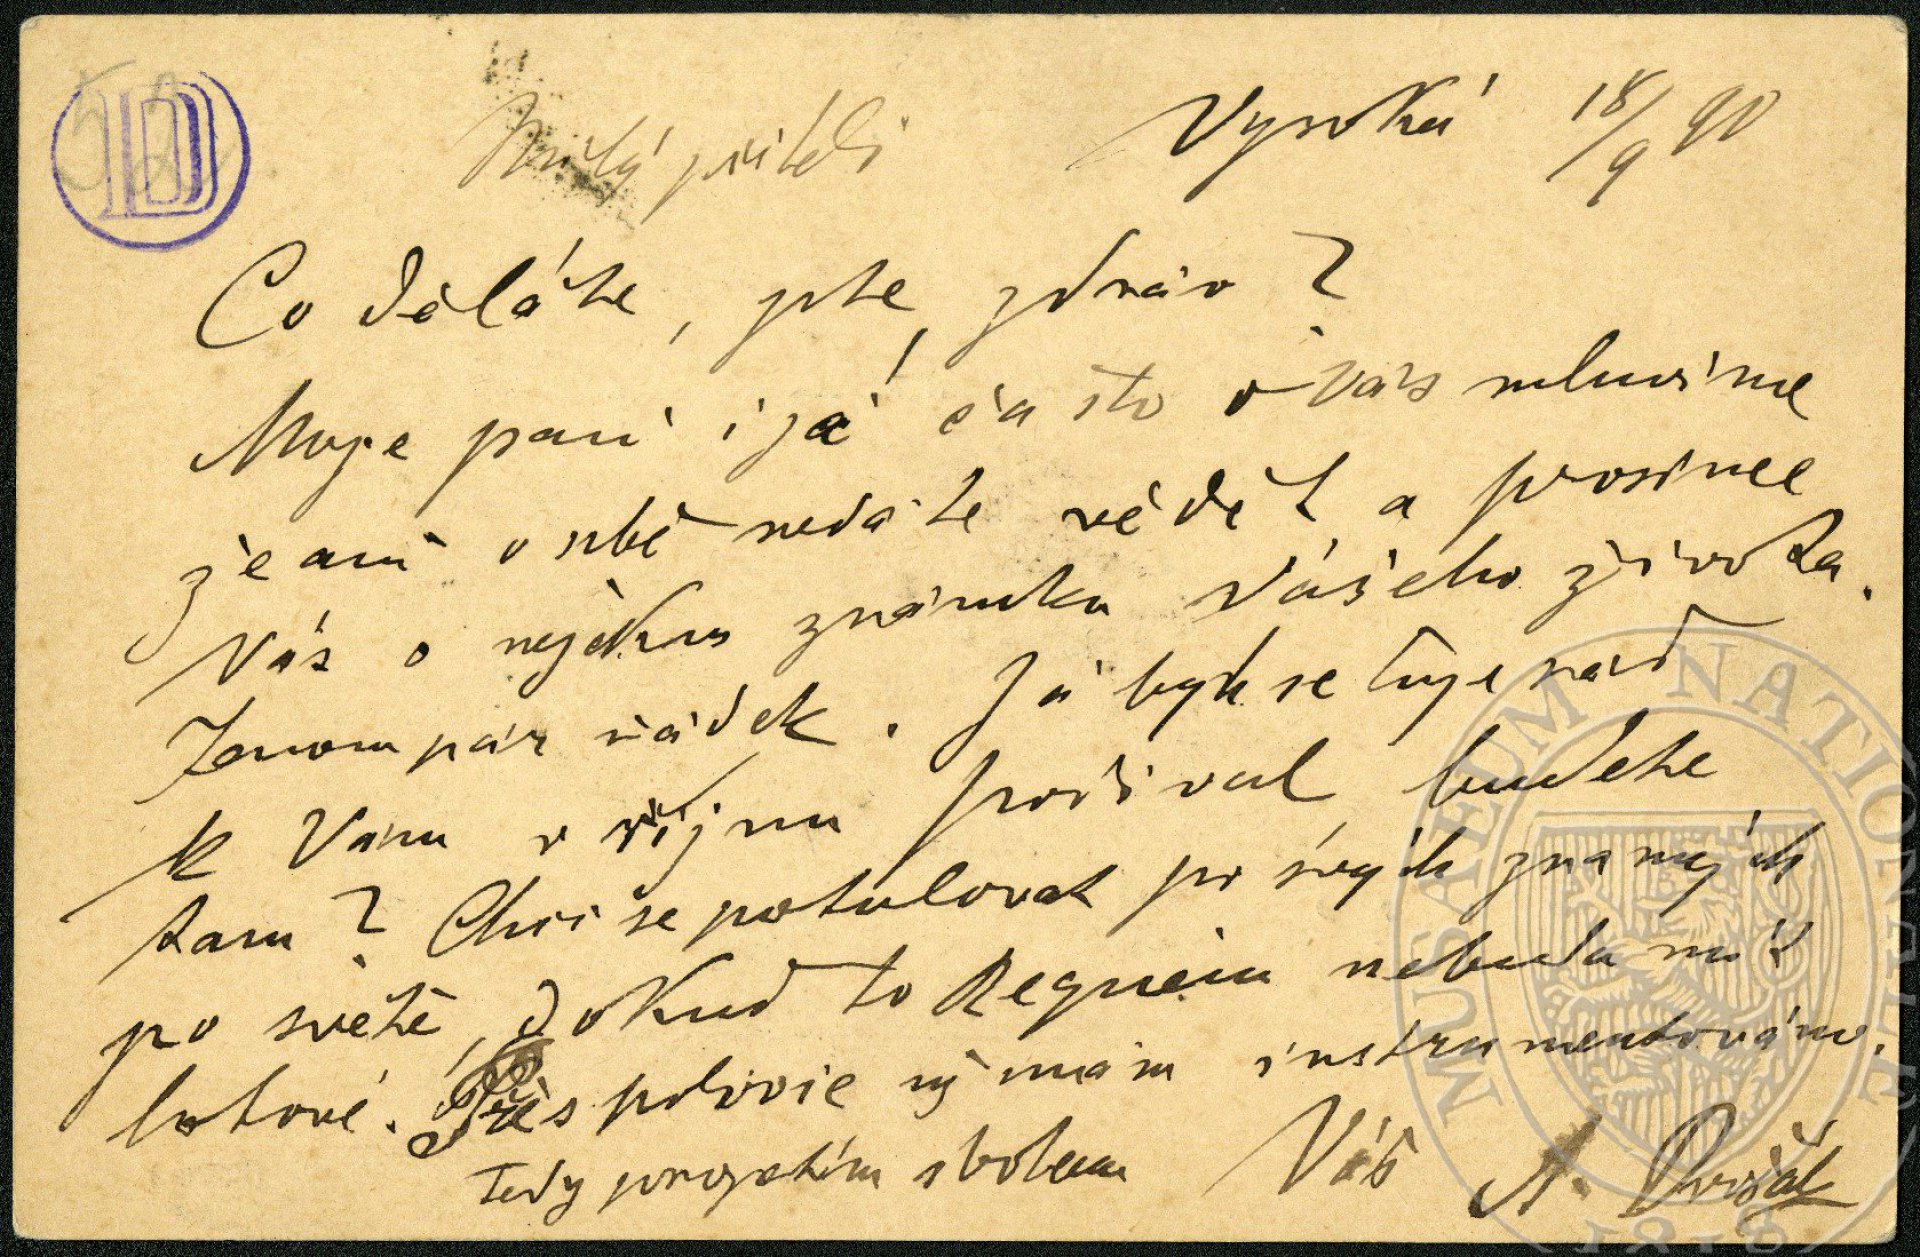 Vysoká 18/9 90
Milý příteli
Co děláte, jste zdráv?
Moje paní i já často o Vás mluvíme
že ani o sobě nedáte vědět a prosíme
Vás o nějakou známku Vašeho života.
Jenom pár řádek. Já bych se tuze rád
k Vám v říjnu podíval, budete
tam? Chci se potulovat po svých známých
po světě, dokud to Requiem nebudu mít
hotové. Přes polovic už mám instrumentováno.
Tedy prozatím sbohem Váš A. Dvořák
MUSAEUM NATIONALE
1818